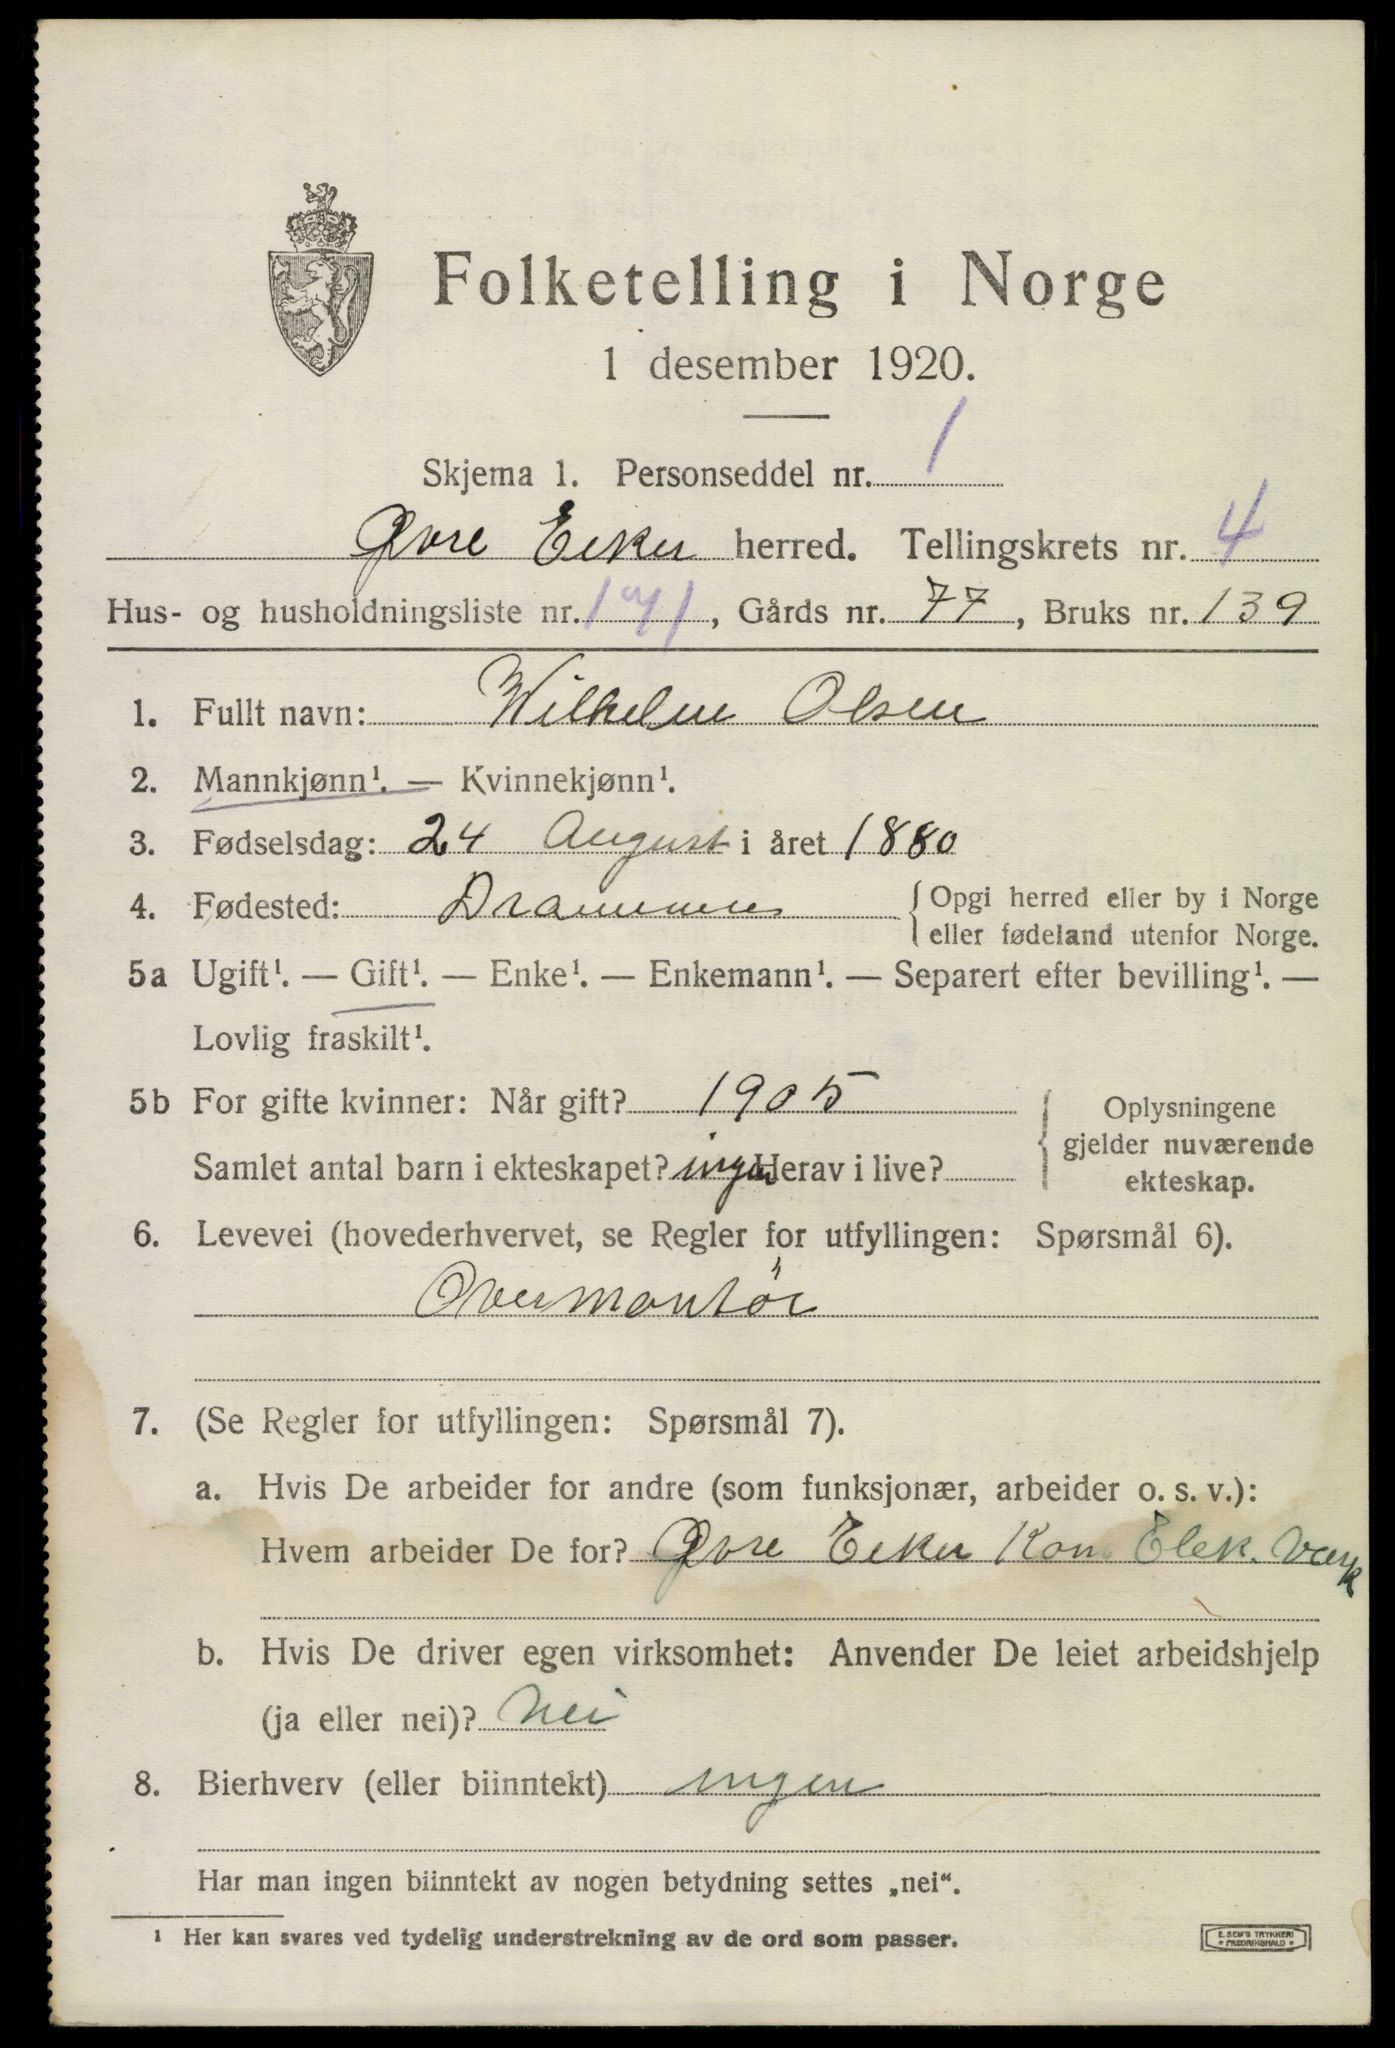 Folketelling i Norge
1 desember 1920.
Skjema 1. Personseddel nr. 1
Øvre Eeker herred. Tellingskrets nr. 4
Hus- og husholdningsliste nr. 171, Gårds nr. 77, Bruks nr. 139
1. Fullt navn: Wilhelm Olsen
2. Mannkjønn¹. — Kvinnekjønn¹.
3. Fødselsdag: 24 August i året 1880
4. Fødested: Drammen { Opgi herred eller by i Norge
eller fødeland utenfor Norge.
5a Ugift¹. — Gift¹. — Enke¹. — Enkemann¹. — Separert efter bevilling¹. —
Lovlig fraskilt¹.
5b For gifte kvinner: Når gift? 1905
Samlet antal barn i ekteskapet? ingen Herav i live?
Oplysningene
gjelder nuværende
ekteskap.
6. Levevei (hovederhvervet, se Regler for utfyllingen: Spørsmål 6).
Overmontör
7. (Se Regler for utfyllingen: Spørsmål 7).
a. Hvis De arbeider for andre (som funksjonær, arbeider o. s. v.):
Hvem arbeider De for? Øvre Eeker Kom. Elek. Værk
b. Hvis De driver egen virksomhet: Anvender De leiet arbeidshjelp
(ja eller nei)? Nei
8. Bierhverv (eller biinntekt) ingen
Har man ingen biinntekt av nogen betydning settes „nei“.
¹ Her kan svares ved tydelig understrekning av de ord som passer.
E. SEM'S TRYKKERI
• FREDRIKSHALD •